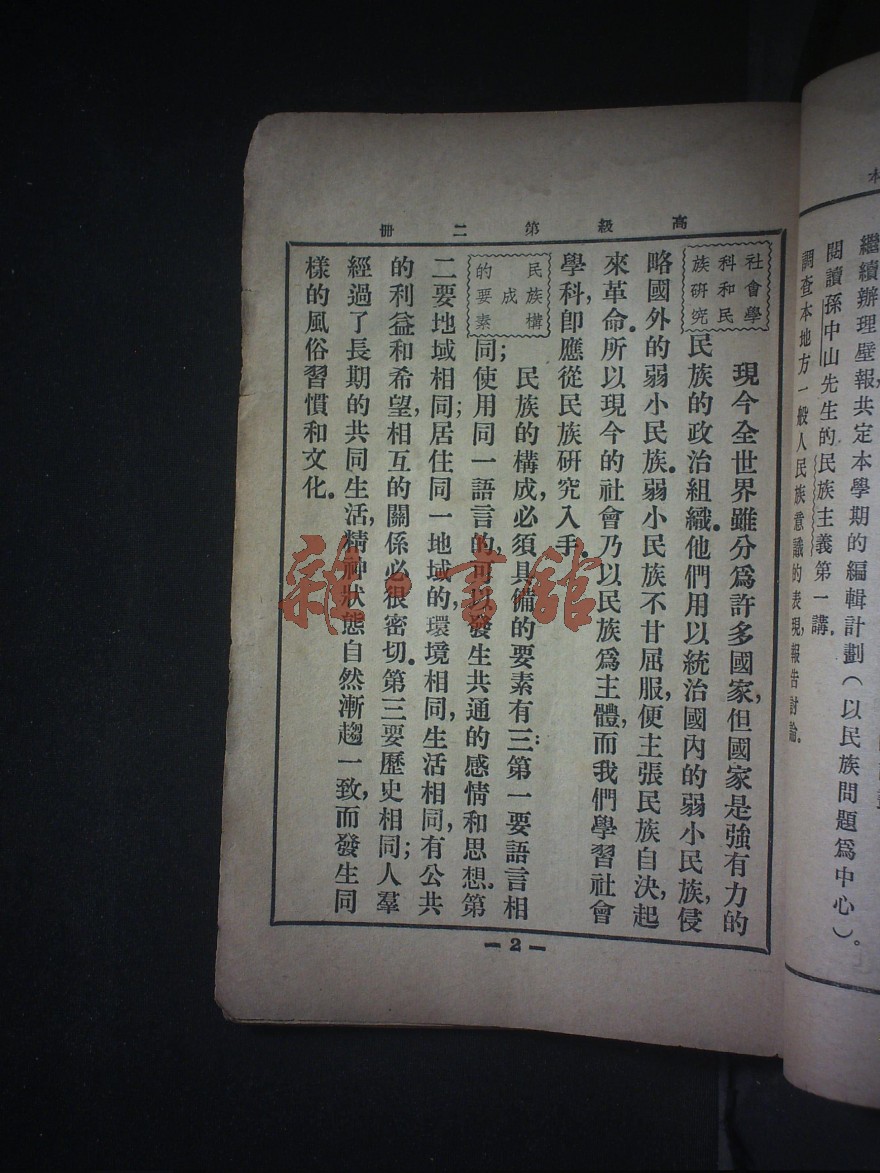 本
繼續辦理壁報,共定本學期的編輯計劃(以民族問題爲中心)。
閱讀孫中山先生的民族主義第一講。
調查本地方一般人民族意識的表現,報告討論。
高級第二冊
社會學
科和民
族研究
現今全世界雖分爲許多國家,但國家是強有力的
民族的政治組織。他們用以統治國內的弱小民族,侵
略國外的弱小民族。弱小民族不甘屈服,便主張民族自決,起
來革命。所以現今的社會乃以民族爲主體,而我們學習社會
學科,卽應從民族研究入手。
民族構
成
的要素
民族的構成,必須具備的要素有三:第一要語言相
同;使用同一語言的,可以發生共通的感情和思想。第
二要地域相同;居住同一地域的,環境相同,生活相同,有公共
的利益和希望,相互的關係必很密切。第三要歷史相同;人羣
經過了長期的共同生活,精神狀態自然漸趨一致,而發生同
樣的風俗習慣和文化。
—2—
雜·書館